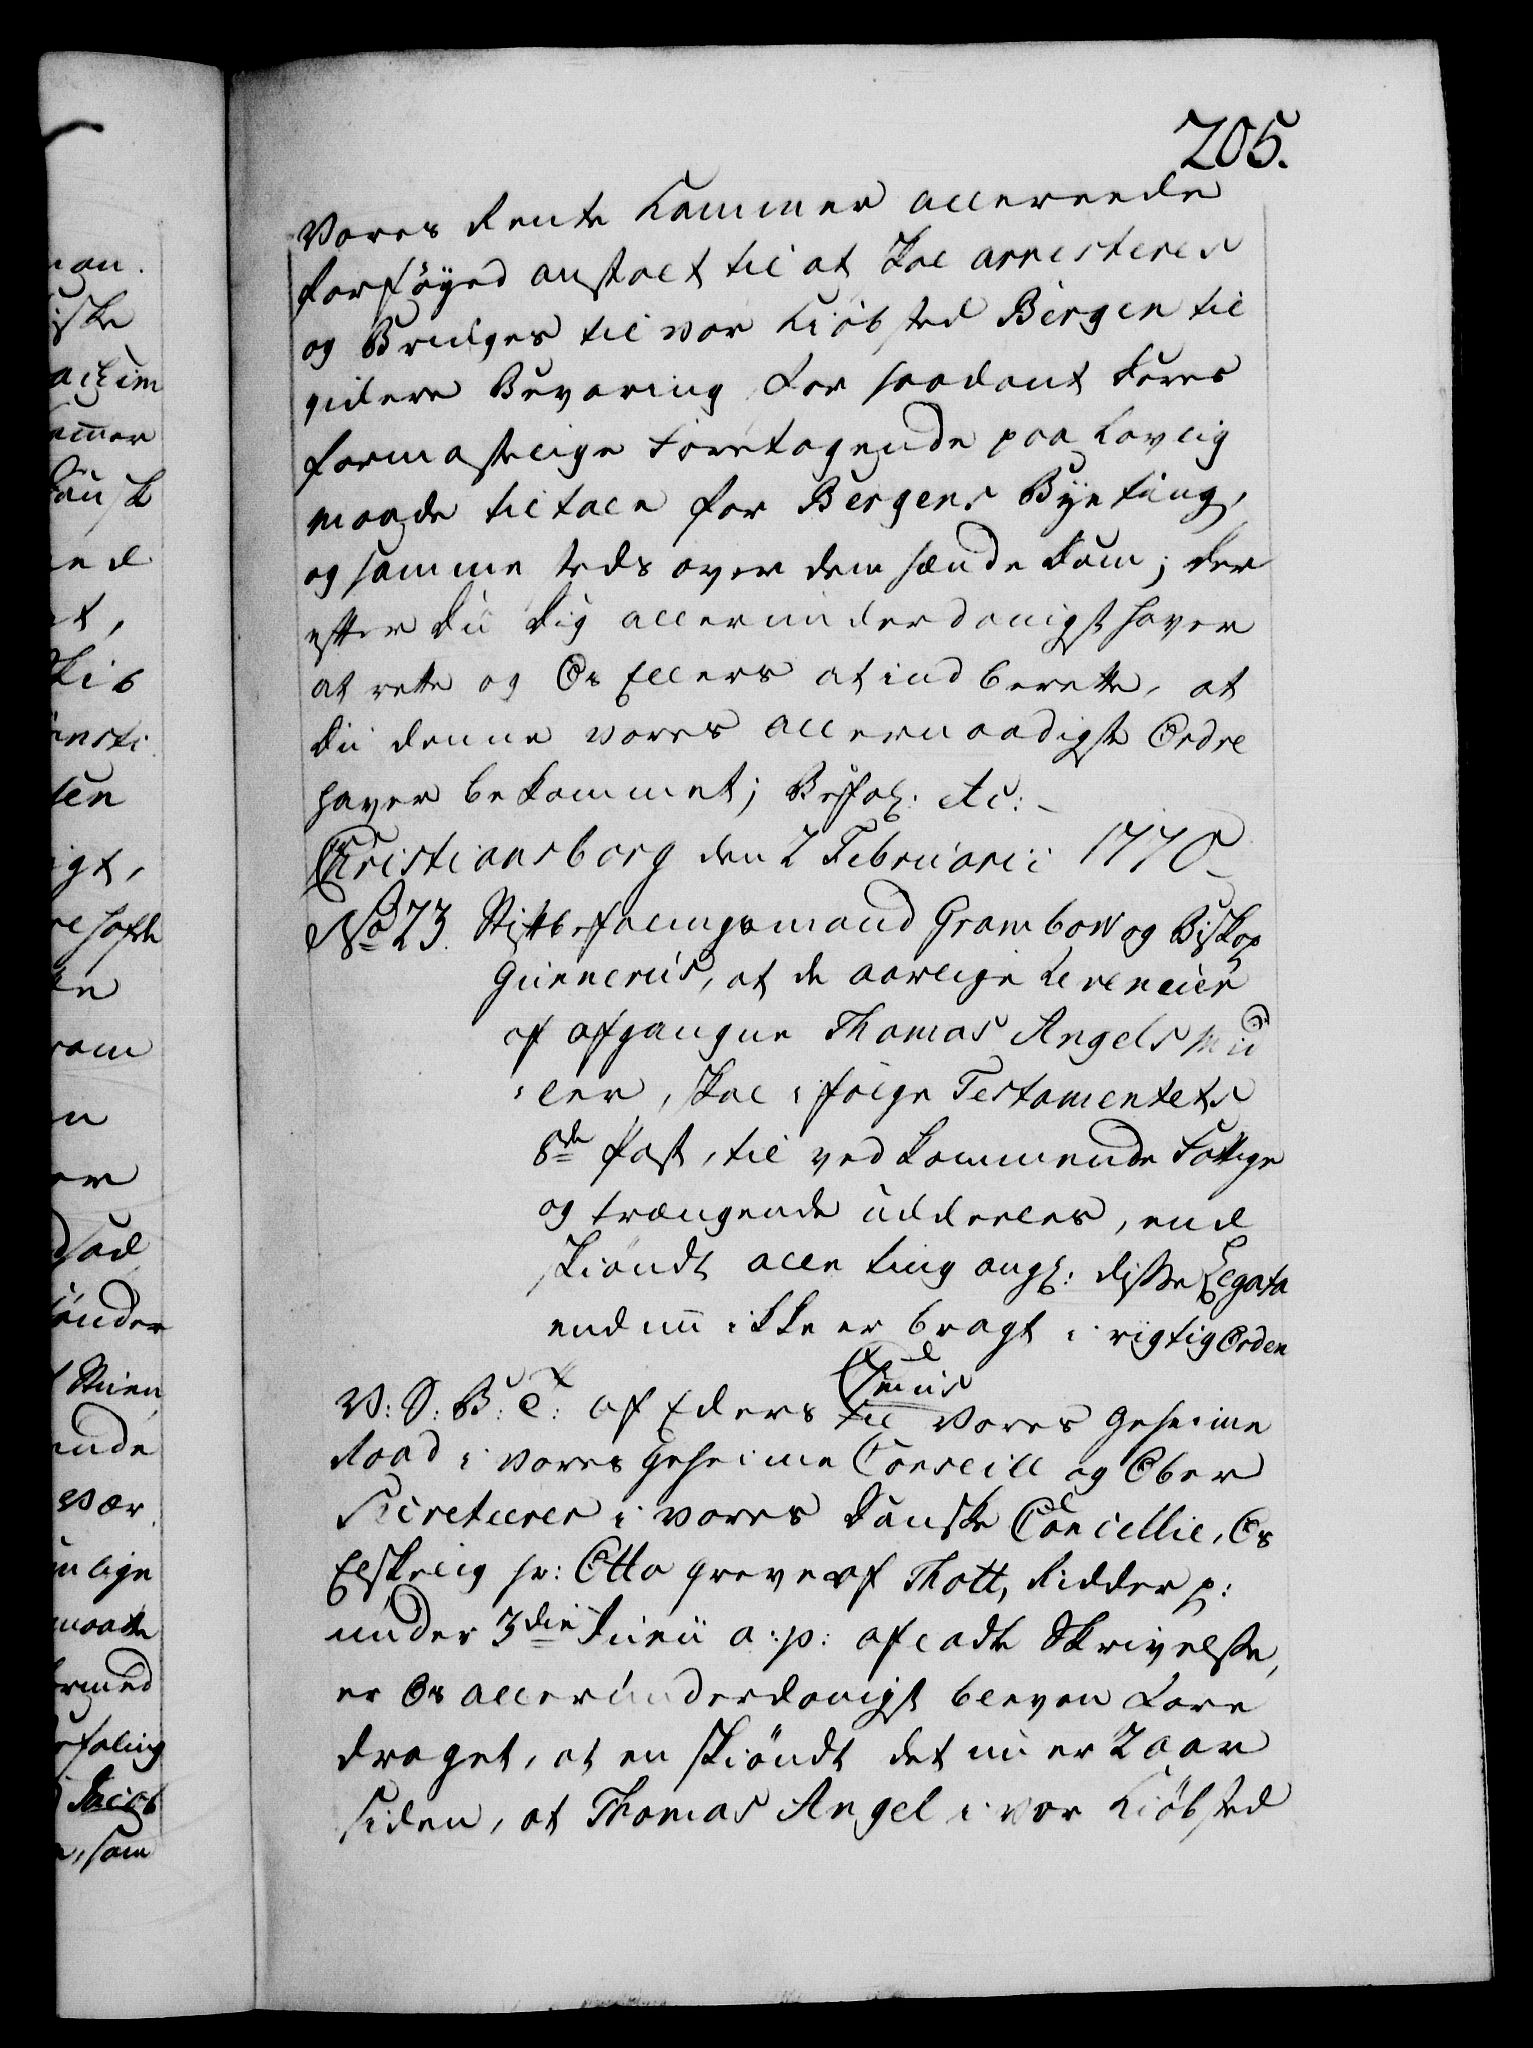 205.
Vores Rente Kammer allereede
forföyed anstalt til at skal arresteres
og Bringes til vor Kiöbsted Bergen til
videre Bevaring for saadant deres
formastelige Foretagende paa Lovlig
maade tiltale for Bergens Byeting,
og samme steds over dem sænde Dom; der
efter du dig allerunderdanigst haver
at rette og Os Ellers at indberette, at
du denne vores allernaadigste Ordre
haver bekommet; Befal: etc:
Christiansborg den 2 Februarii 1770
No 23. Stiftbefalingsmand Grambow og Biskop
Gunnerus, at de aarlige Revenüer
af afgangne Thomas Angels Mid
ler, skal i fölge Testamentets
8de Post, til vedkommende Fattige
og trængende uddeeles, end
skiöndt alle ting ang: disse Legata
endnu ikke er bragt i rigtig Orden
V: S: B: T: af Eders til Vores Geheime
Raad i vores Geheime Conseill og Ober
Secreterer i vores Danske Cancellie, Os
Elskelig hr: Otto Greve af Thott, Ridder p:
under 3die Junii a: p: afladte Skrivelse,
er Os allerunderdanigst bleven fore
draget, at en skiöndt det nu er 2 aar
siden, at Thomas Angel i vor Kiöbsted